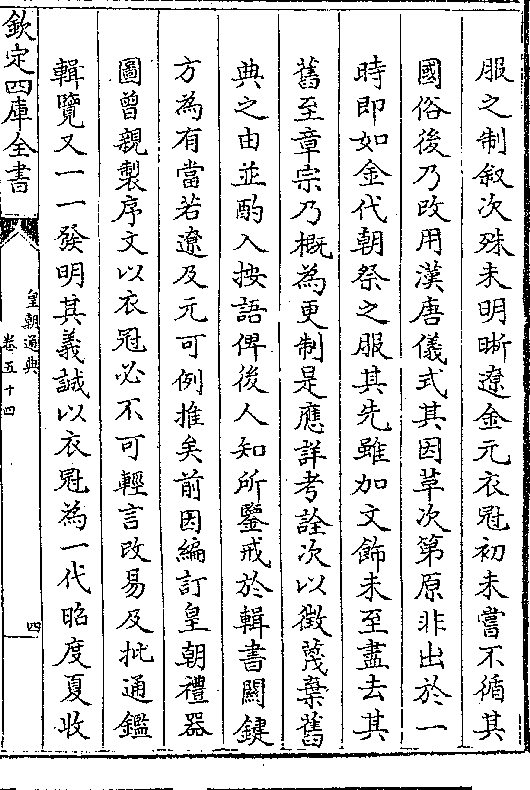 服之制叙次殊未明晰遼金元衣冠初未嘗不循其
國俗後乃改用漢唐儀式其因革次第原非出於一
時即如金代朝祭之服其先雖加文飾未至盡去其
舊至章宗乃概為更制是應詳考詮次以徵蔑棄舊
典之由並酌入按語俾後人知所鑒戒於輯書關鍵
方為有當若遼及元可例推矣前因編訂皇朝禮器
圖曾親製序文以衣冠必不可輕言改易及批通鑑
輯覽又一一發明其義誠以衣冠為一代昭度夏收
欽定四庫全書
皇朝通典
卷五十四
四